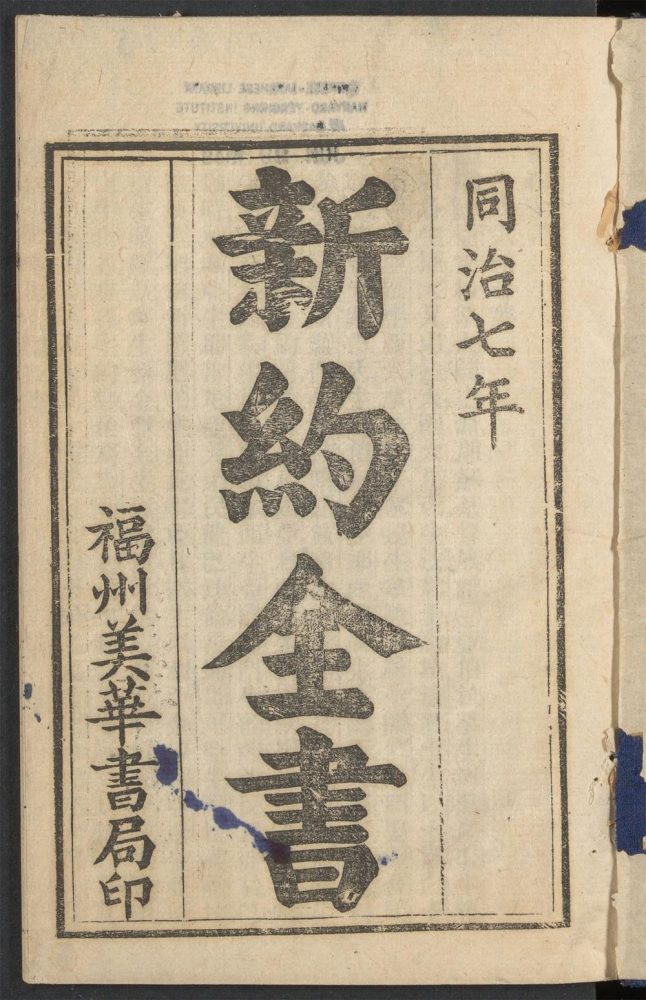 同治七年
新約全書
福州美華書局印